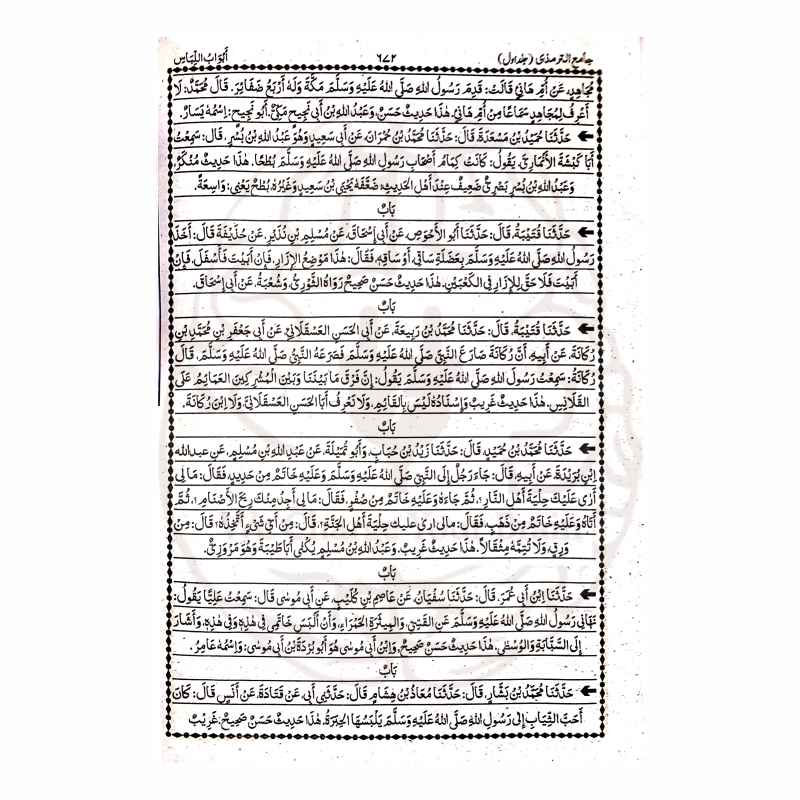 جامع الترمذی (جلد اول) ٦٧٢ أَبْوَابُ اللِّبَاسِ
مُجَاهِدٍ، عَنْ أُمِّ هَانِئٍ قَالَتْ: قَدِمَ رَسُولُ اللهِ صَلَّى اللهُ عَلَيْهِ وَسَلَّمَ مَكَّةَ وَلَهُ أَرْبَعُ ضَفَائِرَ. قَالَ مُحَمَّدٌ: لَا
أَعْرِفُ لِمُجَاهِدٍ سَمَاعًا مِنْ أُمِّ هَانِئٍ. هٰذَا حَدِيثٌ حَسَنٌ. وَعَبْدُ اللهِ بْنُ أَبِي نَجِيحٍ مَكِّيٌّ. أَبُو نَجِيحٍ: اِسْمُهُ يَسَارٌ.
حَدَّثَنَا حُمَيْدُ بْنُ مَسْعَدَةَ قَالَ: حَدَّثَنَا مُحَمَّدُ بْنُ حُمْرَانَ، عَنْ أَبِي سَعِيدٍ وَهُوَ عَبْدُ اللهِ بْنُ بُسْرٍ، قَالَ: سَمِعْتُ
أَبَا كَبْشَةَ الأَنْمَارِيَّ، يَقُولُ: كَانَتْ كِمَامُ أَصْحَابِ رَسُولِ اللهِ صَلَّى اللهُ عَلَيْهِ وَسَلَّمَ بُطْحًا. هٰذَا حَدِيثٌ مُنْكَرٌ،
وَعَبْدُ اللهِ بْنُ بُسْرٍ بَصْرِيٌّ ضَعِيفٌ عِنْدَ أَهْلِ الْحَدِيثِ، ضَعَّفَهُ يَحْيَى بْنُ سَعِيدٍ وَغَيْرُهُ. بُطْحٌ يَعْنِي: وَاسِعَةٌ.
بَابٌ
حَدَّثَنَا قُتَيْبَةُ، قَالَ: حَدَّثَنَا أَبُو الأَحْوَصِ، عَنْ أَبِي إِسْحَاقَ، عَنْ مُسْلِمِ بْنِ نُذَيْرٍ، عَنْ حُذَيْفَةَ قَالَ: أَخَذَ
رَسُولُ اللهِ صَلَّى اللهُ عَلَيْهِ وَسَلَّمَ بِعَضَلَةِ سَاقِي، أَوْ سَاقِهِ، فَقَالَ: هٰذَا مَوْضِعُ الإِزَارِ، فَإِنْ أَبَيْتَ فَأَسْفَلَ، فَإِنْ
أَبَيْتَ فَلَا حَقَّ لِلْإِزَارِ فِي الْكَعْبَيْنِ. هٰذَا حَدِيثٌ حَسَنٌ صَحِيحٌ رَوَاهُ الثَّوْرِيُّ، وَشُعْبَةُ، عَنْ أَبِي إِسْحَاقَ.
بَابٌ
حَدَّثَنَا قُتَيْبَةُ، قَالَ: حَدَّثَنَا مُحَمَّدُ بْنُ رَبِيعَةَ، عَنْ أَبِي الْحَسَنِ الْعَسْقَلَانِيِّ، عَنْ أَبِي جَعْفَرِ بْنِ مُحَمَّدِ بْنِ
رُكَانَةَ، عَنْ أَبِيهِ، أَنَّ رُكَانَةَ صَارَعَ النَّبِيَّ صَلَّى اللهُ عَلَيْهِ وَسَلَّمَ فَصَرَعَهُ النَّبِيُّ صَلَّى اللهُ عَلَيْهِ وَسَلَّمَ، قَالَ
رُكَانَةُ: سَمِعْتُ رَسُولَ اللهِ صَلَّى اللهُ عَلَيْهِ وَسَلَّمَ يَقُولُ: إِنَّ فَرْقَ مَا بَيْنَنَا وَبَيْنَ الْمُشْرِكِينَ الْعَمَائِمُ عَلَى
الْقَلَانِسِ. هٰذَا حَدِيثٌ غَرِيبٌ وَإِسْنَادُهُ لَيْسَ بِالْقَائِمِ، وَلَا نَعْرِفُ أَبَا الْحَسَنِ الْعَسْقَلَانِيَّ وَلَا ابْنَ رُكَانَةَ.
بَابٌ
حَدَّثَنَا مُحَمَّدُ بْنُ حُمَيْدٍ، قَالَ: حَدَّثَنَا زَيْدُ بْنُ حُبَابٍ، وَأَبُو تُمَيْلَةَ، عَنْ عَبْدِ اللهِ بْنِ مُسْلِمٍ، عَنْ عبد الله
ابْنِ بُرَيْدَةَ، عَنْ أَبِيهِ، قَالَ: جَاءَ رَجُلٌ إِلَى النَّبِيِّ صَلَّى اللهُ عَلَيْهِ وَسَلَّمَ وَعَلَيْهِ خَاتَمٌ مِنْ حَدِيدٍ، فَقَالَ: مَا لِي
أَرَى عَلَيْكَ حِلْيَةَ أَهْلِ النَّارِ؟، ثُمَّ جَاءَهُ وَعَلَيْهِ خَاتَمٌ مِنْ صُفْرٍ، فَقَالَ: مَا لِي أَجِدُ مِنْكَ رِيحَ الأَصْنَامِ؟، ثُمَّ
أَتَاهُ وَعَلَيْهِ خَاتَمٌ مِنْ ذَهَبٍ، فَقَالَ: مالي ارى عليك حِلْيَةَ أَهْلِ الْجَنَّةِ؟، قَالَ: مِنْ أَيِّ شَيْءٍ أَتَّخِذُهُ؟ قَالَ: مِنْ
وَرِقٍ، وَلَا تُتِمَّهُ مِثْقَالًا. هٰذَا حَدِيثٌ غَرِيبٌ. وَعَبْدُ اللهِ بْنُ مُسْلِمٍ يُكْنَى أَبَا طَيْبَةَ وَهُوَ مَرْوَزِيٌّ.
بَابٌ
حَدَّثَنَا ابْنُ أَبِي عُمَرَ، قَالَ: حَدَّثَنَا سُفْيَانُ، عَنْ عَاصِمِ بْنِ كُلَيْبٍ، عَنِ أَبِي مُوسَى قَالَ: سَمِعْتُ عَلِيًّا يَقُولُ:
نَهَانِي رَسُولُ اللهِ صَلَّى اللهُ عَلَيْهِ وَسَلَّمَ عَنِ الْقَسِّيِّ، وَالْمِيثَرَةِ الْحَمْرَاءِ، وَأَنْ أَلْبَسَ خَاتَمِي فِي هٰذِهِ وَفِي هٰذِهِ، وَأَشَارَ
إِلَى السَّبَّابَةِ وَالْوُسْطَى. هٰذَا حَدِيثٌ حَسَنٌ صَحِيحٌ. وَابْنُ أَبِي مُوسَى هُوَ أَبُو بُرْدَةَ بْنُ أَبِي مُوسَى: وَاسْمُهُ عَامِرُ.
بَابٌ
حَدَّثَنَا مُحَمَّدُ بْنُ بَشَّارٍ، قَالَ: حَدَّثَنَا مُعَاذُ بْنُ هِشَامٍ، قَالَ: حَدَّثَنِي أَبِي، عَنْ قَتَادَةَ، عَنْ أَنَسٍ قَالَ: كَانَ
أَحَبَّ الثِّيَابِ إِلَى رَسُولِ اللهِ صَلَّى اللهُ عَلَيْهِ وَسَلَّمَ يَلْبَسُهَا الْحِبَرَةُ. هٰذَا حَدِيثٌ حَسَنٌ صَحِيحٌ، غَرِيبٌ